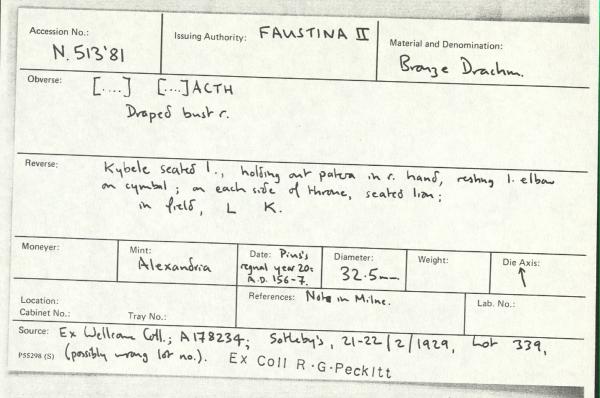 Accession No.: N.513'81
Issuing Authority: FAUSTINA II
Material and Denomination: Bronze Drachm.
Obverse: [....] [...]ACTH
Draped bust r.
Reverse: Kybele seated l., holding out patera in r. hand, resting l. elbow
on cymbal; on each side of throne, seated lion;
in field, L K.
Moneyer:
Mint: Alexandria
Date: Pius's
regnal year 20:
A.D. 156-7.
Diameter: 32.5mm
Weight:
Die Axis: ↑
Location:
Cabinet No.: Tray No.:
References: Not in Milne.
Lab. No.:
Source: Ex Wellcome Coll.; A178234; Sotheby's, 21-22/2/1929, Lot 339,
P55298 (S) (possibly wrong lot no.). Ex Coll R.G.Peckitt